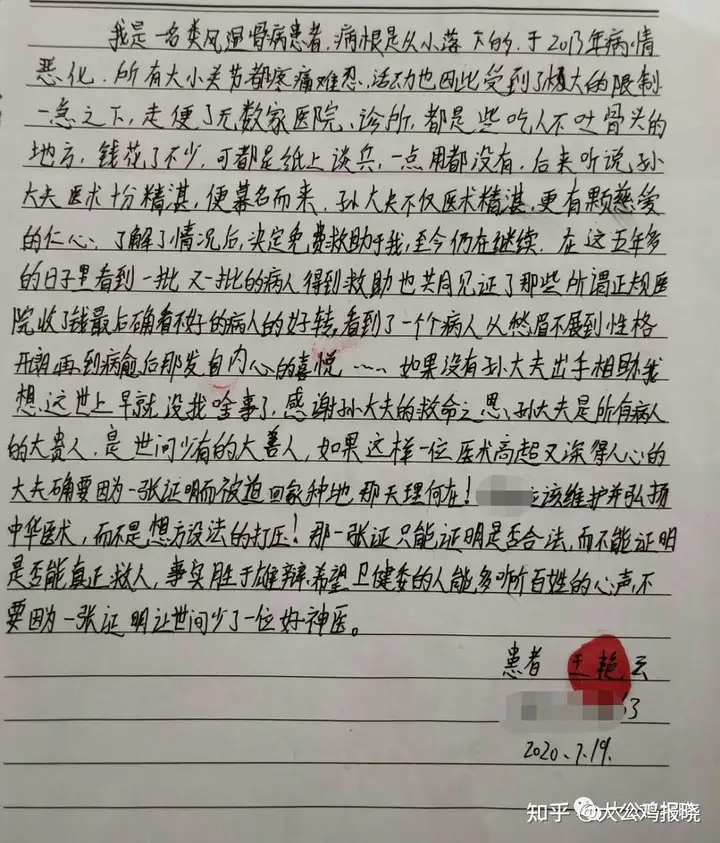 我是一名类风湿骨病患者，病根是从小落下的，于2013年病情
恶化，所有大小关节都疼痛难忍，活动也因此受到了极大的限制
一急之下，走便了无数家医院、诊所，都是些吃人不吐骨头的
地方，钱花了不少，可都是纸上谈兵，一点用都没有，后来听说孙
大夫医术十分精湛，便慕名而来，孙大夫不仅医术精湛，更有颗慈爱
的仁心，了解了情况后，决定免费救助于我，至今仍在继续．在这五年多
的日子里看到一批又一批的病人得到救助也共同见证了那些所谓正规医
院收了钱最后确看不好的病人的好转，看到了一个个病人从愁眉不展到性格
开朗再到病愈后那发自内心的喜悦……如果没有孙大夫出手相助，我
想，这世上早就没我啥事了，感谢孙大夫的救命之恩，孙大夫是所有病人
的大贵人，是世间少有的大善人，如果这样一位医术高超又深得人心的
大夫确要因为一张证明而被迫回家种地，那天理何在！应该维护并弘扬
中华医术，而不是想方设法的打压！那一张证只能证明是否合法，而不能证明
是否能真正救人，事实胜于雄辩，希望卫健委的人能多听听百姓的心声，不
要因为一张证明让世间少了一位好神医。
患者 王艳云
3
2020.7.19.
知乎 @大公鸡报晓